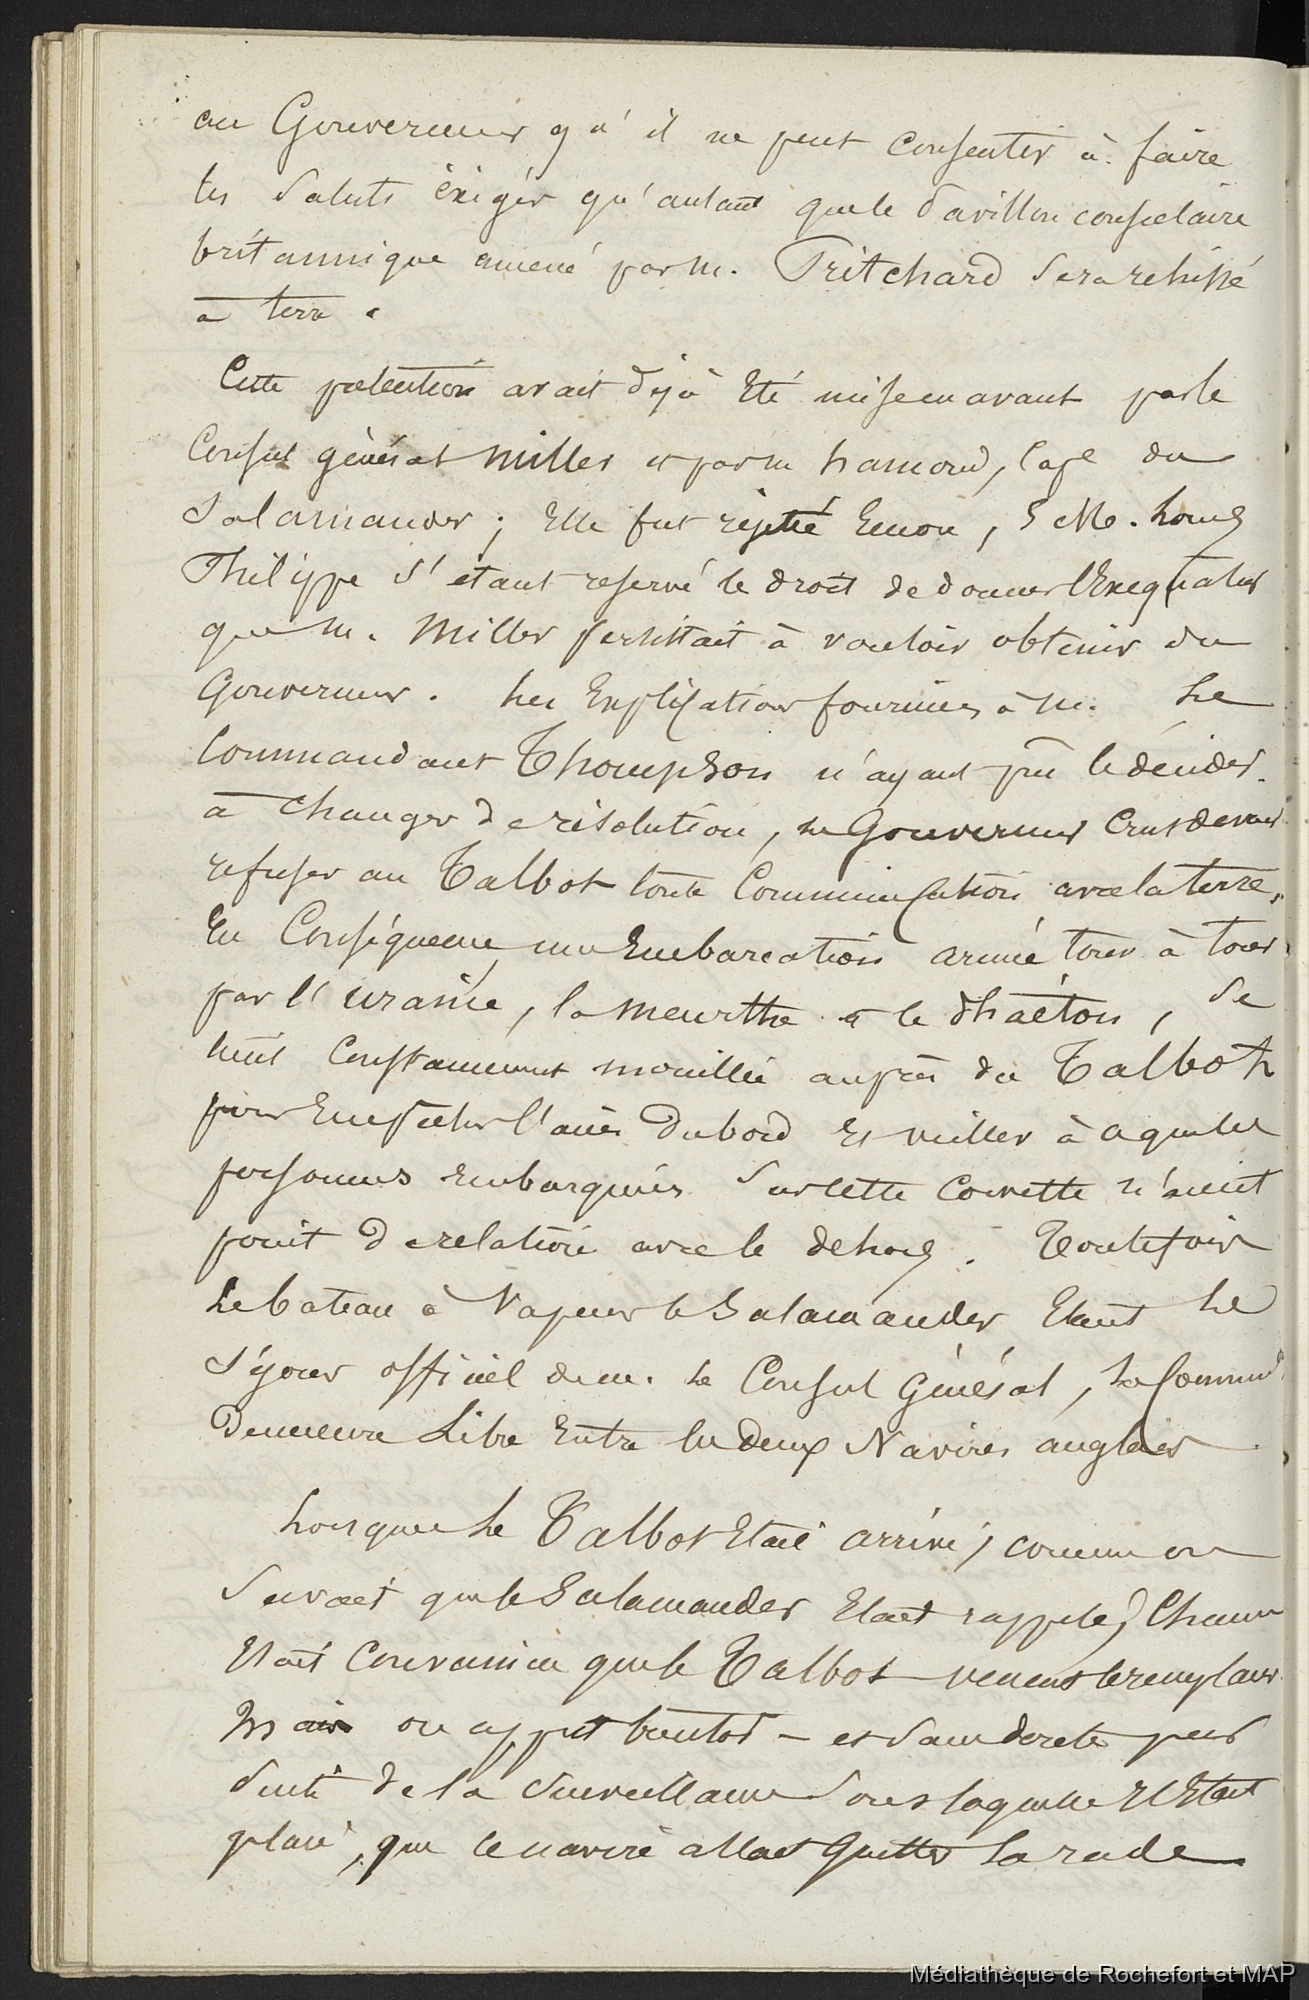 au Gouverneur qu'il ne peut consentir à faire
les Saluts éxigés qu'autant que le Pavillon consulaire
britannique amené par M. Pritchard sera rehissé
à terre.
Cette prétention avait déjà Eté mise en avant par le
Consul général Miller et par M hamond, Cape du
Salamander ; Elle fut rejetté Encore, S Me. Louis
Philippe s'étant reservé le droit de donner l'Exequatur
que M. Miller persistait à vouloir obtenir du
Gouverneur. Les Explications fournies à M. Le
Commandant Thompson n'ayant pû le décider
à changer de résolution, le Gouverneur Crut devoir
refuser au Talbot toute Communication avec la terre,
En Conséquence une Embarcation armée tour à tour
par l'uranie, la Meurthe et le Phaéton, se
tint Constamment mouillée auprès du Talbot
pour Empêcher l'accès du bord Et veiller à ce que les
personnes embarquées sur cette Corvette n'aient
point de relation avec le dehors. Toutefois
Le bateau à Vapeur le Salamander Etant Le
séjour officiel de M. Le Consul Général, La Commun
Demeure Libre Entre les deux Navires anglais
Lorsque Le Talbot Etait arrivé, comme on
savait que le Salamander Etait rappelé, Chacun
Etait Convaincu que le Talbot venait le remplacer
Mais on apprit bientôt – et sans doute par
suite de la Surveillance sous laquelle il Etait
placé, que le navire allait quitter La rade